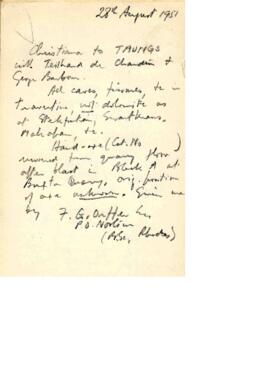 28th August 1951
Christiana to TAUNGS
with Teilhard de Chardin &
George Barbour.
All caves, fissures, etc in
travertine not dolomite as
at Sterkfontein, Swartkrans,
Makapan, etc.
Hand-axe (Cat. No )
recovered from quarry floor
after blast in Block A at
Buxton Quarry, orig. position
of axe unknown. Given me
by F. G.
P.O. Norlim
(B.Sc, Rhodes)